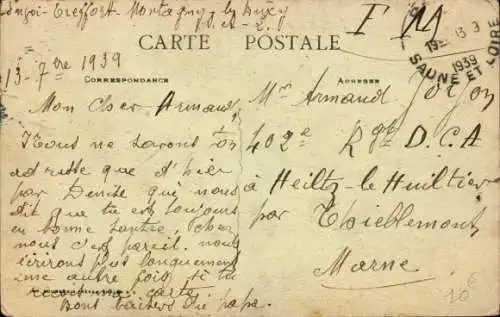 Treffort Montagny-les-Buxy
S. et L.
F M
CARTE POSTALE
CORRESPONDANCE
ADRESSE
13-7bre 1939
19 13 9
1939
SAONE ET LOIRE
Mon cher Armand,
Nous ne savons ton
adresse que d'hier
par Denise qui nous
dit que tu es toujours
en bonne santée, chez
nous c'est pareil. nous
écrirons plus longuement
une autre fois si tu
carte
Bons baisers du papa.
Mr Armand
402e Rgt D.C.A
à Heiltz-le-Huiltier
par Thieblemont
Marne
10€